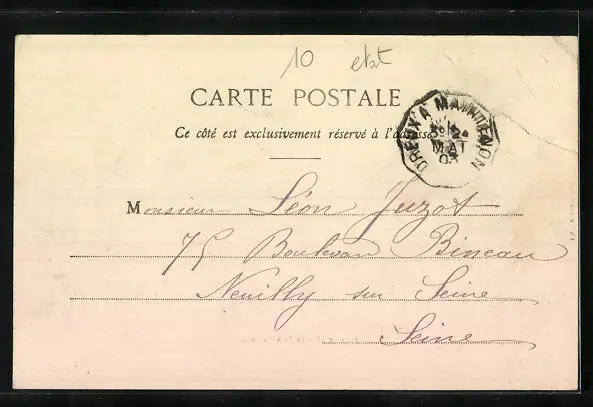 10 etat
CARTE POSTALE
Ce côté est exclusivement réservé à l'adresse
DREUX A MAINTENON
24
MAI
03
Monsieur Léon Juzot
75 Boulevard Bineau
Neuilly sur Seine
Seine